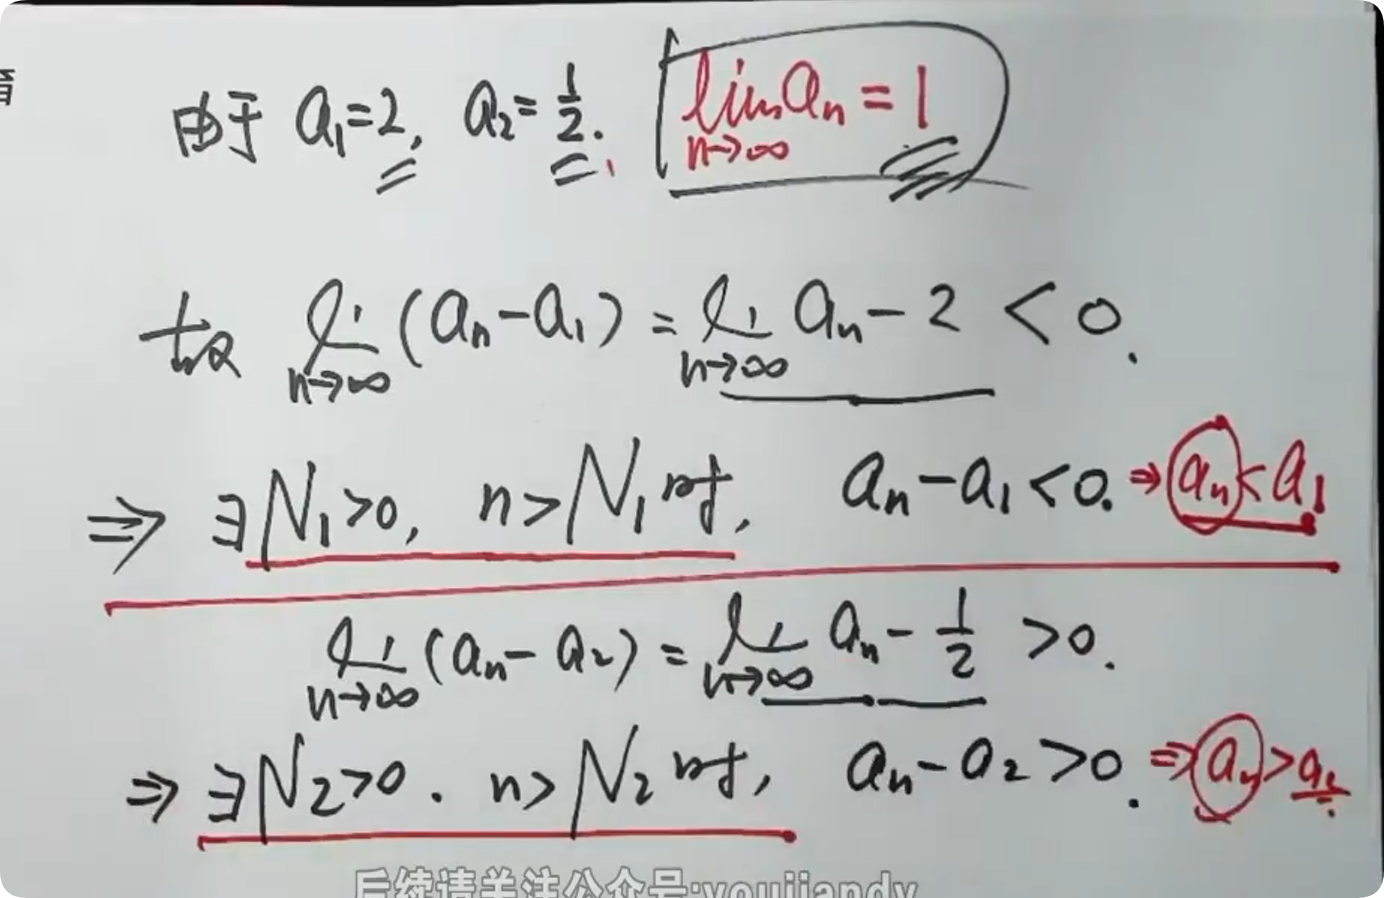 育
由于 a₁=2, a₂=1/2. lim n→∞ aₙ = 1
故 lim n→∞ (aₙ-a₁) = lim n→∞ aₙ - 2 < 0.
⇒ ∃N₁>0, n>N₁时, aₙ-a₁<0. ⇒ aₙ<a₁
lim n→∞ (aₙ-a₂) = lim n→∞ aₙ - 1/2 >0.
⇒ ∃N₂>0. n>N₂时, aₙ-a₂>0. ⇒ aₙ>a₂
后续请关注公众号:youjiandy